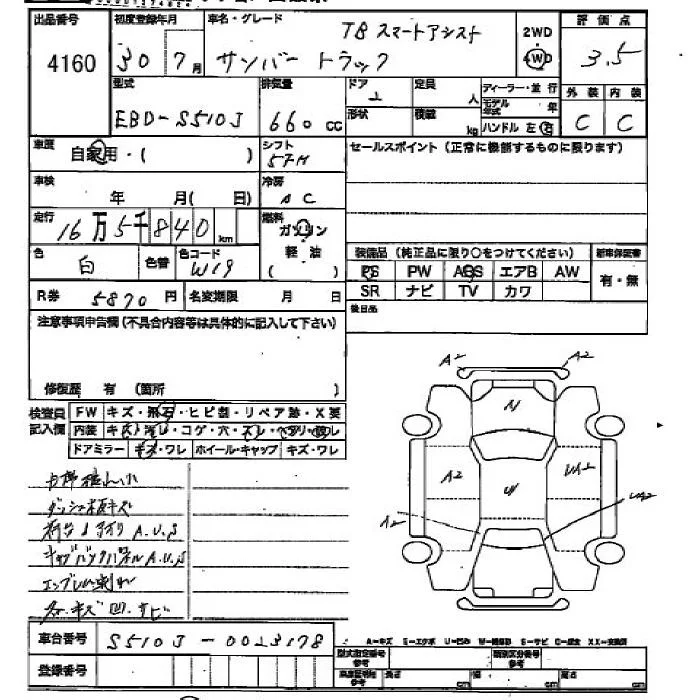 出品番号 初度登録年月 車名・グレード 評価点
4160 30 7月 TB スマートアシスト
サンバー トラック 2WD 4WD 3.5
型式 排気量 ドア 定員 人 ディーラー・並 行 外装 内装
EBD-S510J 660 CC 2 形状 積載 kg モデル年式 年 ハンドル 左 右 C C
車歴 自家用・( ) シフト 5FM セールスポイント(正常に機能するものに限ります)
車検 年 月( 日) 冷房 AC
走行 16万5千840km 燃料 ガソリン 軽油 ( )
色 白 色替 色コード W19 装備品(純正品に限り○をつけてください) 新車保証書
PS PW ABS エアB AW 有・無
R券 5870円 名変期限 月 日 SR ナビ TV カワ
注意事項申告欄(不具合内容等は具体的に記入して下さい) 後日品
修復歴 有 (箇所 )
A2 A2
検査員記入欄 FW キズ・飛石・ヒビ割・リペア跡・X要
内装 キズ・汚レ・コゲ・穴・スレ・ヘタリ・ワレ
ドアミラー キズ・ワレ ホイール・キャップ キズ・ワレ
A2 UA2
ダッシュ板キズ
A2 UA2
荷台 A.U.S
キャブバックパネル A.U.S
キズ 凹 サビ
車台番号 S510J-0023178
A-キズ E-エクボ U-凹み W-補修跡 S-サビ C-腐食 XX-交換済
登録番号 型式指定番号 参考 類別区分番号 参考
長さ cm 幅 cm 高さ cm